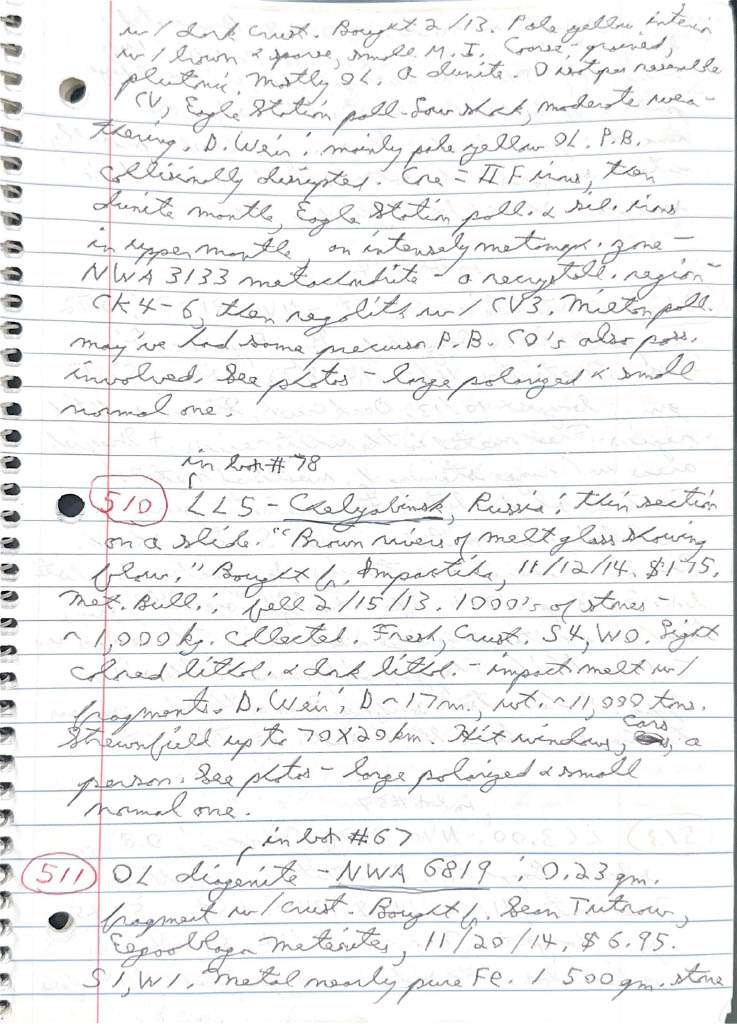 w/ dark crust. Bought 2/13. Pale yellow interior
w/ brown & sparse, small M.I. Coarse-grained,
plutonic, mostly OL. A dunite. O isotopes resemble
CV, Eagle Station pall. Low shock, moderate wea-
thering. D. Weir: mainly pale yellow OL. P.B.
collisionally disrupted. Core = IIF irons, then
dunite mantle, Eagle Station pall. & sil. irons
in upper mantle, an intensely metamorp. zone -
NWA 3133 metachondrite - a recrystall. region -
CK4-6, then regolith w/ CV3. Milton pall.
may've had same precursor P.B. CO's also poss.
involved. See photos - large polarized & small
normal one.
in box #78
510 LL5 - Chelyabinsk, Russia: thin section
on a slide. "Brown rivers of melt glass showing
flow." Bought fr. Impactika, 11/12/14. $175.
Met. Bull.: fell 2/15/13. 1000's of stones -
~ 1,000 kg. collected. Fresh, crust. S4, W0. Light
colored lithol. & dark lithol. - impact melt w/
fragments. D. Weir: D ~ 17m., wt. ~ 11,000 tons.
Strewnfield up to 70X20 km. Hit windows, cars, a
person. See photos - large polarized & small
normal one.
in box #67
511 OL diogenite - NWA 6819: 0.23 gm.
fragment w/ crust. Bought fr. Sean Tutorow,
Eegooblago Meteorites, 11/20/14. $6.95.
S1, W1. Metal nearly pure Fe. 1 500 gm. stone